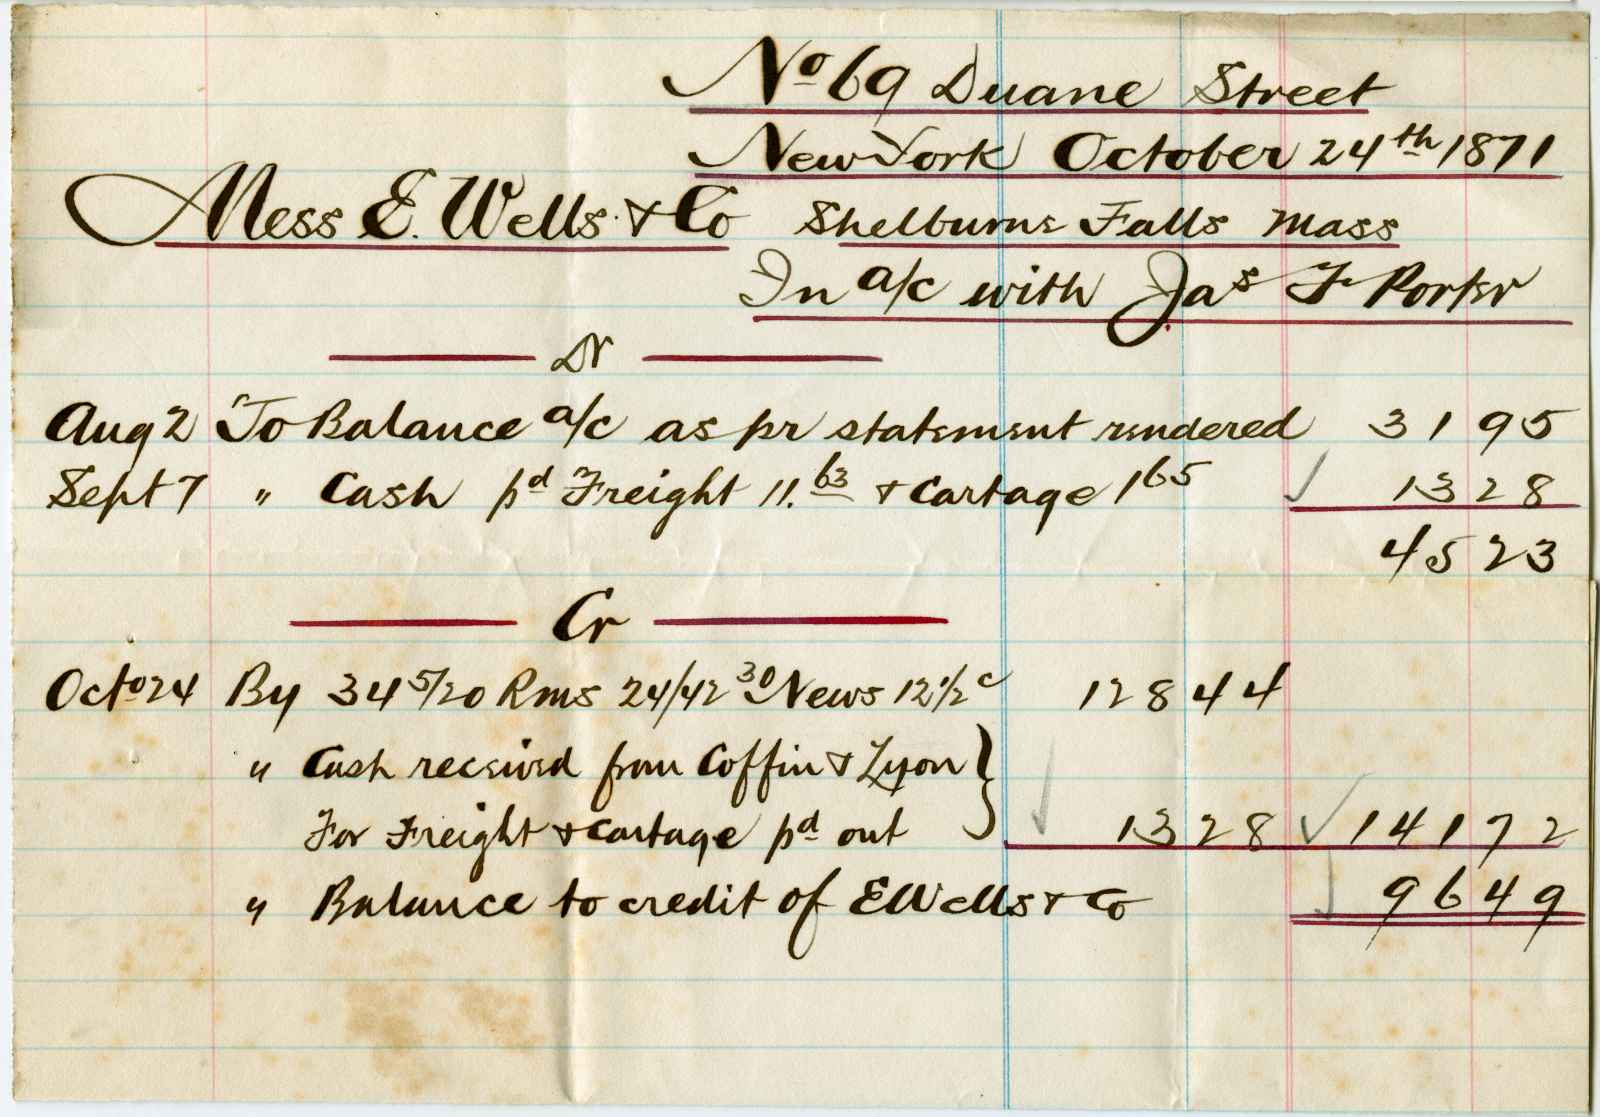 No 69 Duane Street
New York October 24th 1871
Mess E. Wells & Co Shelburne Falls Mass
In a/c with Jas F Porter
Dr
Aug 2 To Balance a/c as pr statement rendered 31 95
Sept 7 " Cash pd Freight 11.63 & Cartage 165 13 28
45 23
Cr
Octo 24 By 34 5/20 Rms 24/42 30 News 12 1/2c 128 44
" Cash received from Coffin & Lyon
For Freight & Cartage pd out 13 28 141 72
" Balance to credit of E Wells & Co 96 49